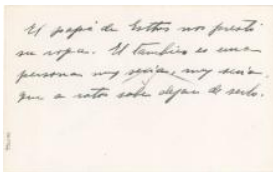 El papá de Esthor nos prestó
su ropa. El también es una
persona muy seria, muy seria.
que a ratos sabe dejar de serlo.